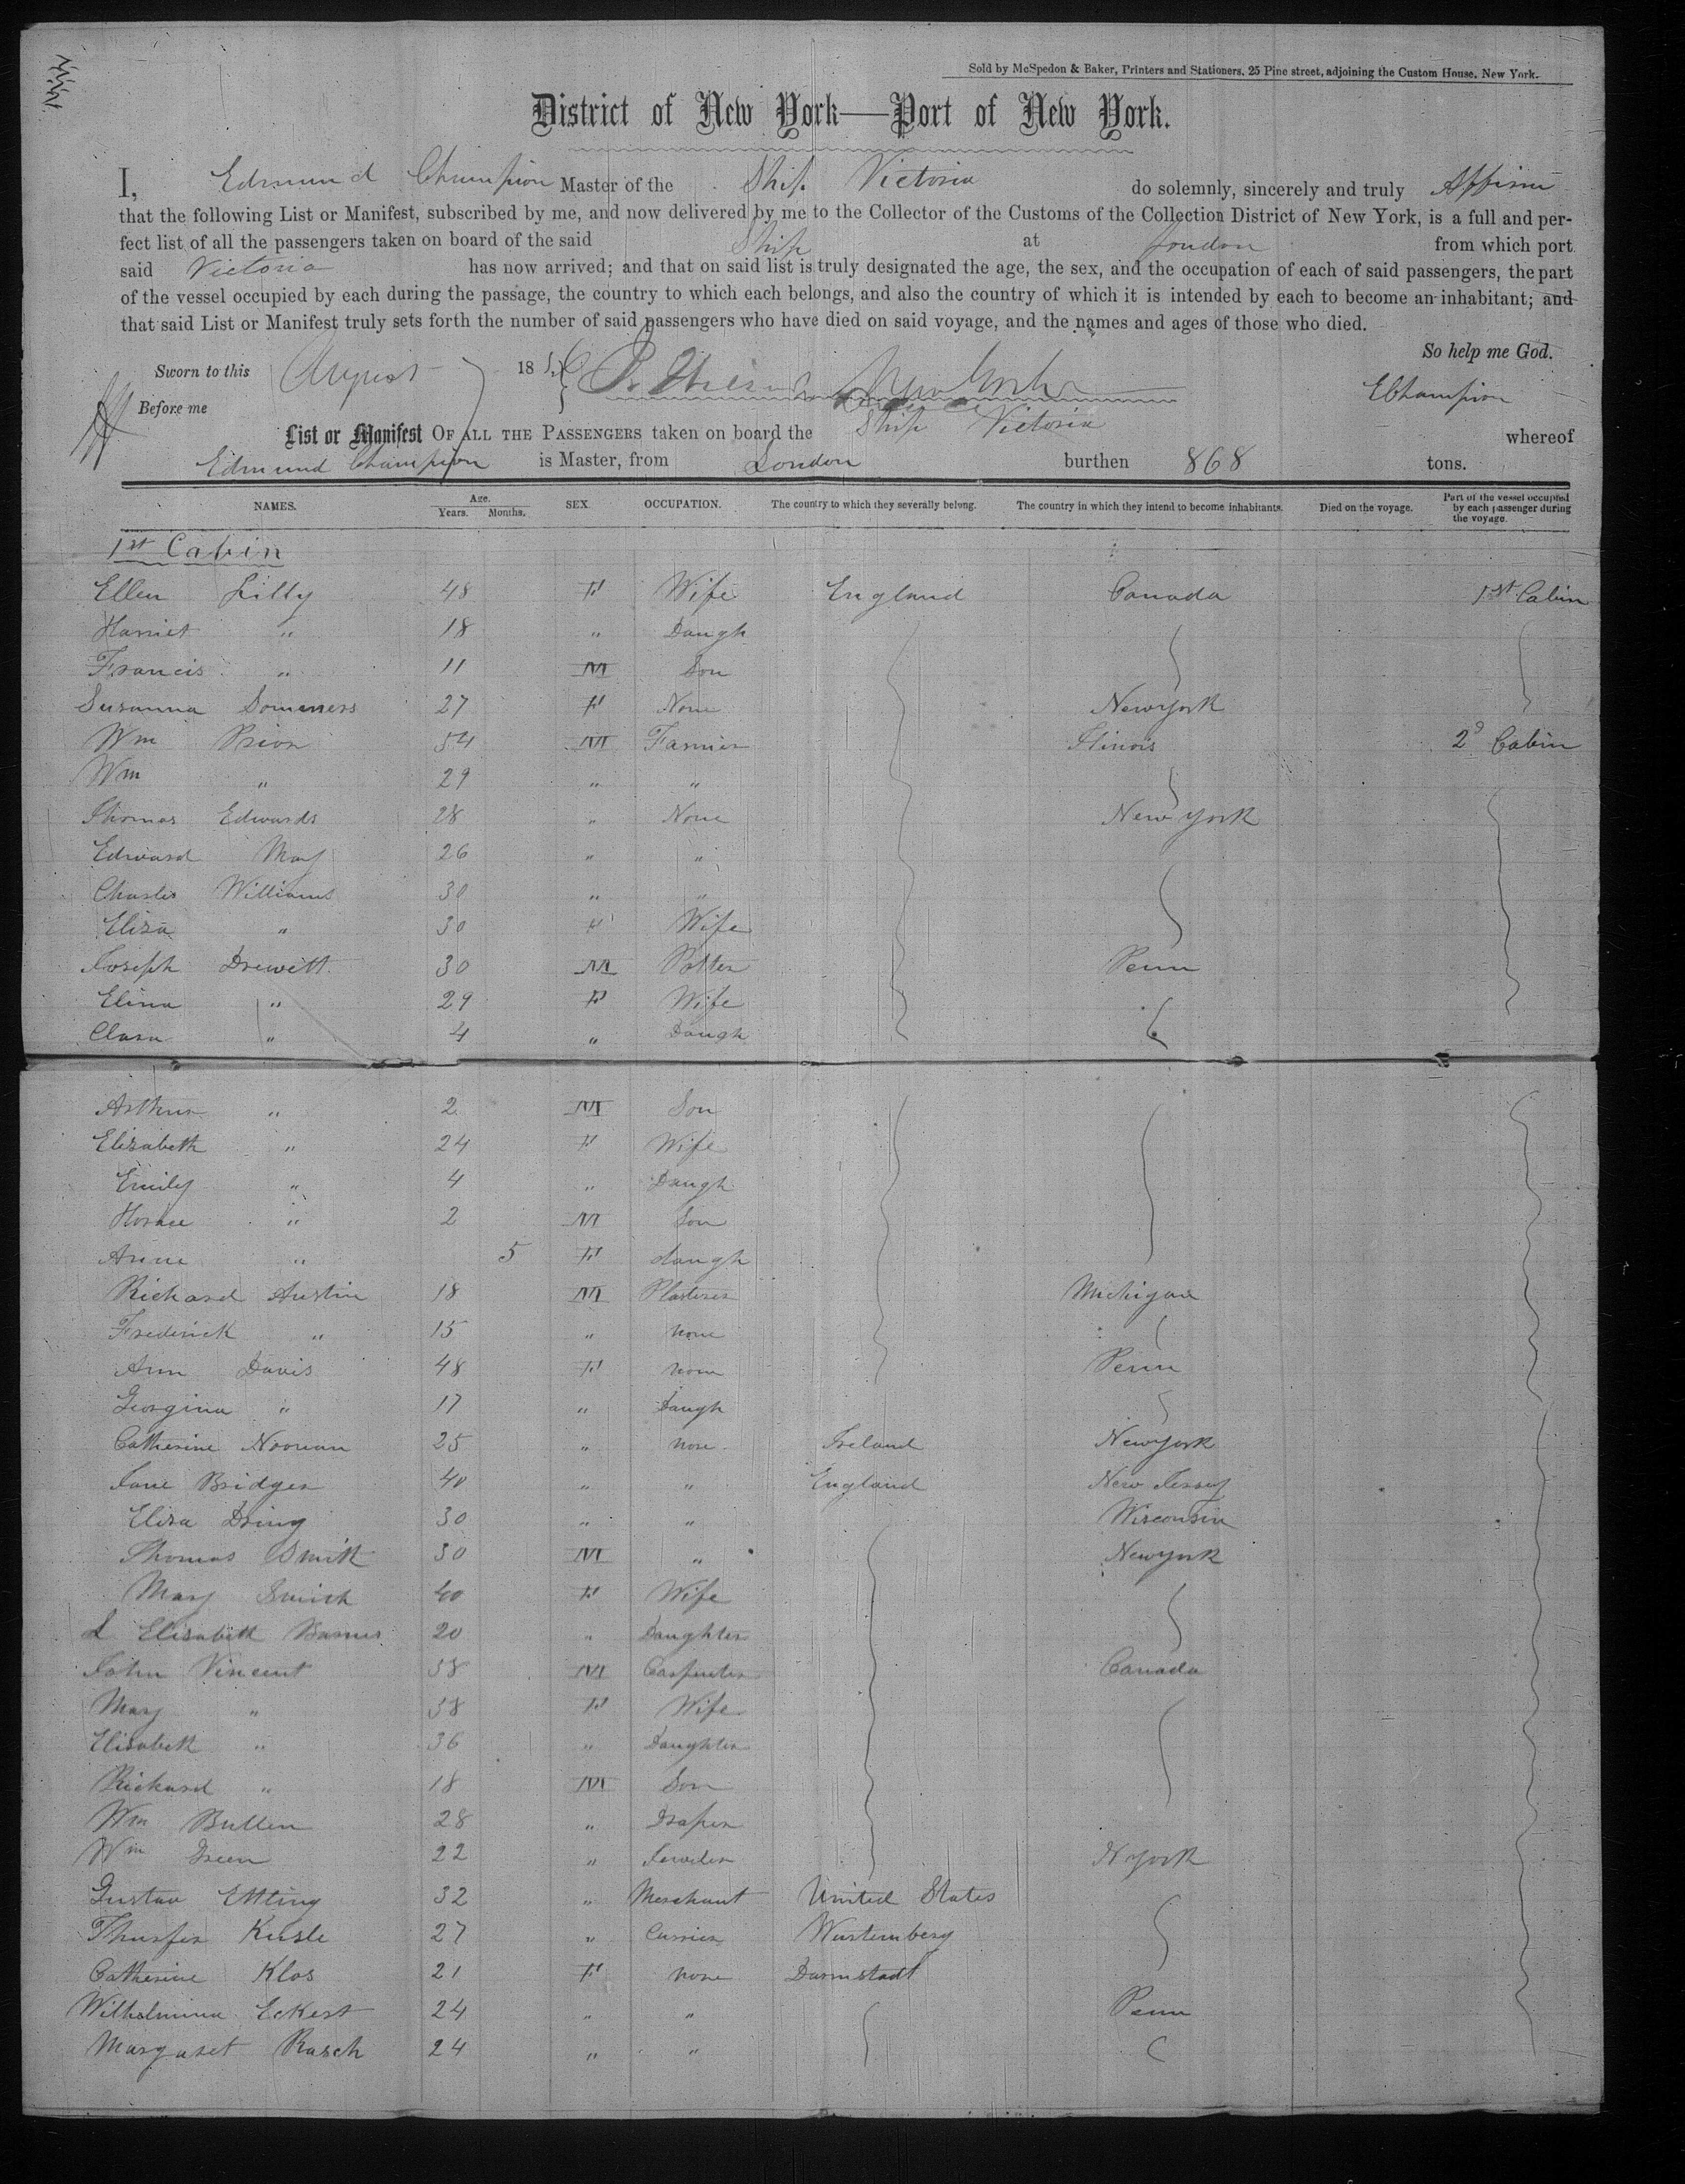 Sold by McSpedon & Baker, Printers and Stationers, 25 Pine street, adjoining the Custom House, New York.
District of New York—Port of New York.
I, Edmund Champion Master of the Ship Victoria do solemnly, sincerely and truly Affirm
that the following List or Manifest, subscribed by me, and now delivered by me to the Collector of the Customs of the Collection District of New York, is a full and per-
fect list of all the passengers taken on board of the said Ship at London from which port
said Victoria has now arrived; and that on said list is truly designated the age, the sex, and the occupation of each of said passengers, the part
of the vessel occupied by each during the passage, the country to which each belongs, and also the country of which it is intended by each to become an inhabitant; and
that said List or Manifest truly sets forth the number of said passengers who have died on said voyage, and the names and ages of those who died.
So help me God.
Sworn to this August 1856
EChampion
Before me
List or Manifest OF ALL THE PASSENGERS taken on board the Ship Victoria whereof
Edmund Champion is Master, from London burthen 868 tons.
NAMES. Age. Years. Months. SEX. OCCUPATION. The country to which they severally belong. The country in which they intend to become inhabitants. Died on the voyage. Part of the vessel occupied by each passenger during the voyage.
1st Cabin
Ellen Lilly 48 F Wife England Canada 1st Cabin
Harriet " 18 " Daugh
Francis " 11 M Son
Susanna Sommers 27 F None Newyork
Wm Prior 54 M Farmer Ilinois 2d Cabin
Wm " 29 " "
Thomas Edwards 28 " None New york
Edward May 26 " "
Charles Williams 30 " "
Eliza " 30 F Wife
Joseph Drewitt 30 M Potter Penn
Elina " 29 F Wife
Clara " 4 " Daugh
Arthur " 2 M Son
Elizabeth " 24 F Wife
Emily " 4 " Daugh
Horace " 2 M Son
Anne " 5 F daugh
Richard Austin 18 M Plasterer Michigan
Frederick " 15 " none
Ann Davis 48 F none Penn
Georgina " 17 " Daugh
Catherine Noonan 25 " none Ireland Newyork
Jane Bridger 40 " " England New Jersey
Eliza Dring 30 " " Wisconsin
Thomas Smith 30 M " Newyork
Mary Smith 40 F Wife
Elizabeth Barnes 20 " Daughter
John Vincent 58 M Carpenter Canada
Mary " 58 F Wife
Elizabeth " 36 " Daughter
Richard " 18 M Son
Wm Bullen 28 " Draper
Wm Green 22 " N york
Gustav Ettling 32 " Merchant United States
Kusle 27 " Currier Wurtemberg
Catherine Klos 21 F none Darmstadt
Wilhelmina Eckert 24 " " Penn
Margaret Rasch 24 " "